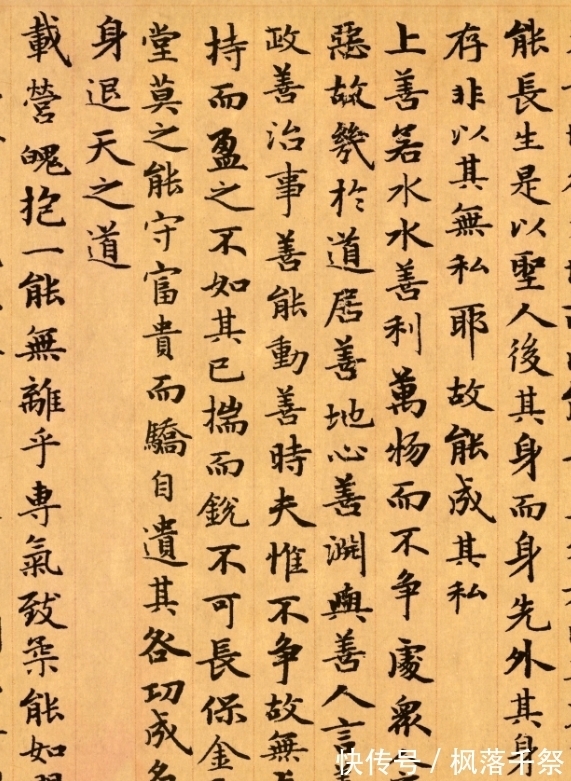 能長生是以聖人後其身而身先外其身
存非以其無私耶故能成其私
上善若水水善利萬物而不争處衆
惡故幾於道居善地心善淵與善人言
政善治事善能動善時夫惟不争故無
持而盈之不如其已揣而銳不可長保金
堂莫之能守富貴而驕自遺其咎功成名
身退天之道
載營魄抱一能無離乎專氣致柔能如
快传号 / 枫落千祭